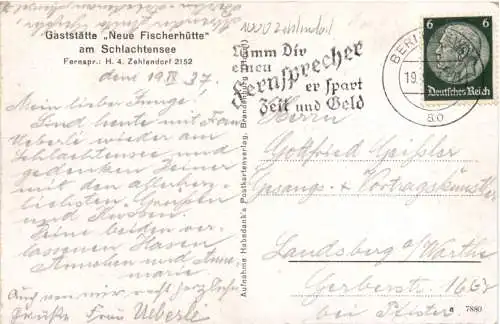 Gaststätte „Neue Fischerhütte"
am Schlachtensee
Fernspr.: H. 4. Zehlendorf 2152
den 19. IX 37.
Mein lieber Junge!
Sind heute mit Frau
Ueberle wieder am
Schlachtensee und
gedenken Deiner
mit den allerherz-
lichsten Grüßen
und Küssen.
Deine beiden ver-
lassenen Hasen
Annchen und Anne-
marie
Auch von mir recht herzliche
Grüße Frau Ueberle
Aufnahme Habedank's Postkartenverlag, Brandenburg (Havel)
1000 Zehlendorf
Nimm Dir
einen
Fernsprecher
er spart
Zeit und Geld
BERLIN
19.
6 6
Deutsches Reich
Herrn
Gottfried Geißler
Gesangs- & Vortragskünstler
Landsberg a/Warthe
Gerberstr. 16
bei Pfister
7880